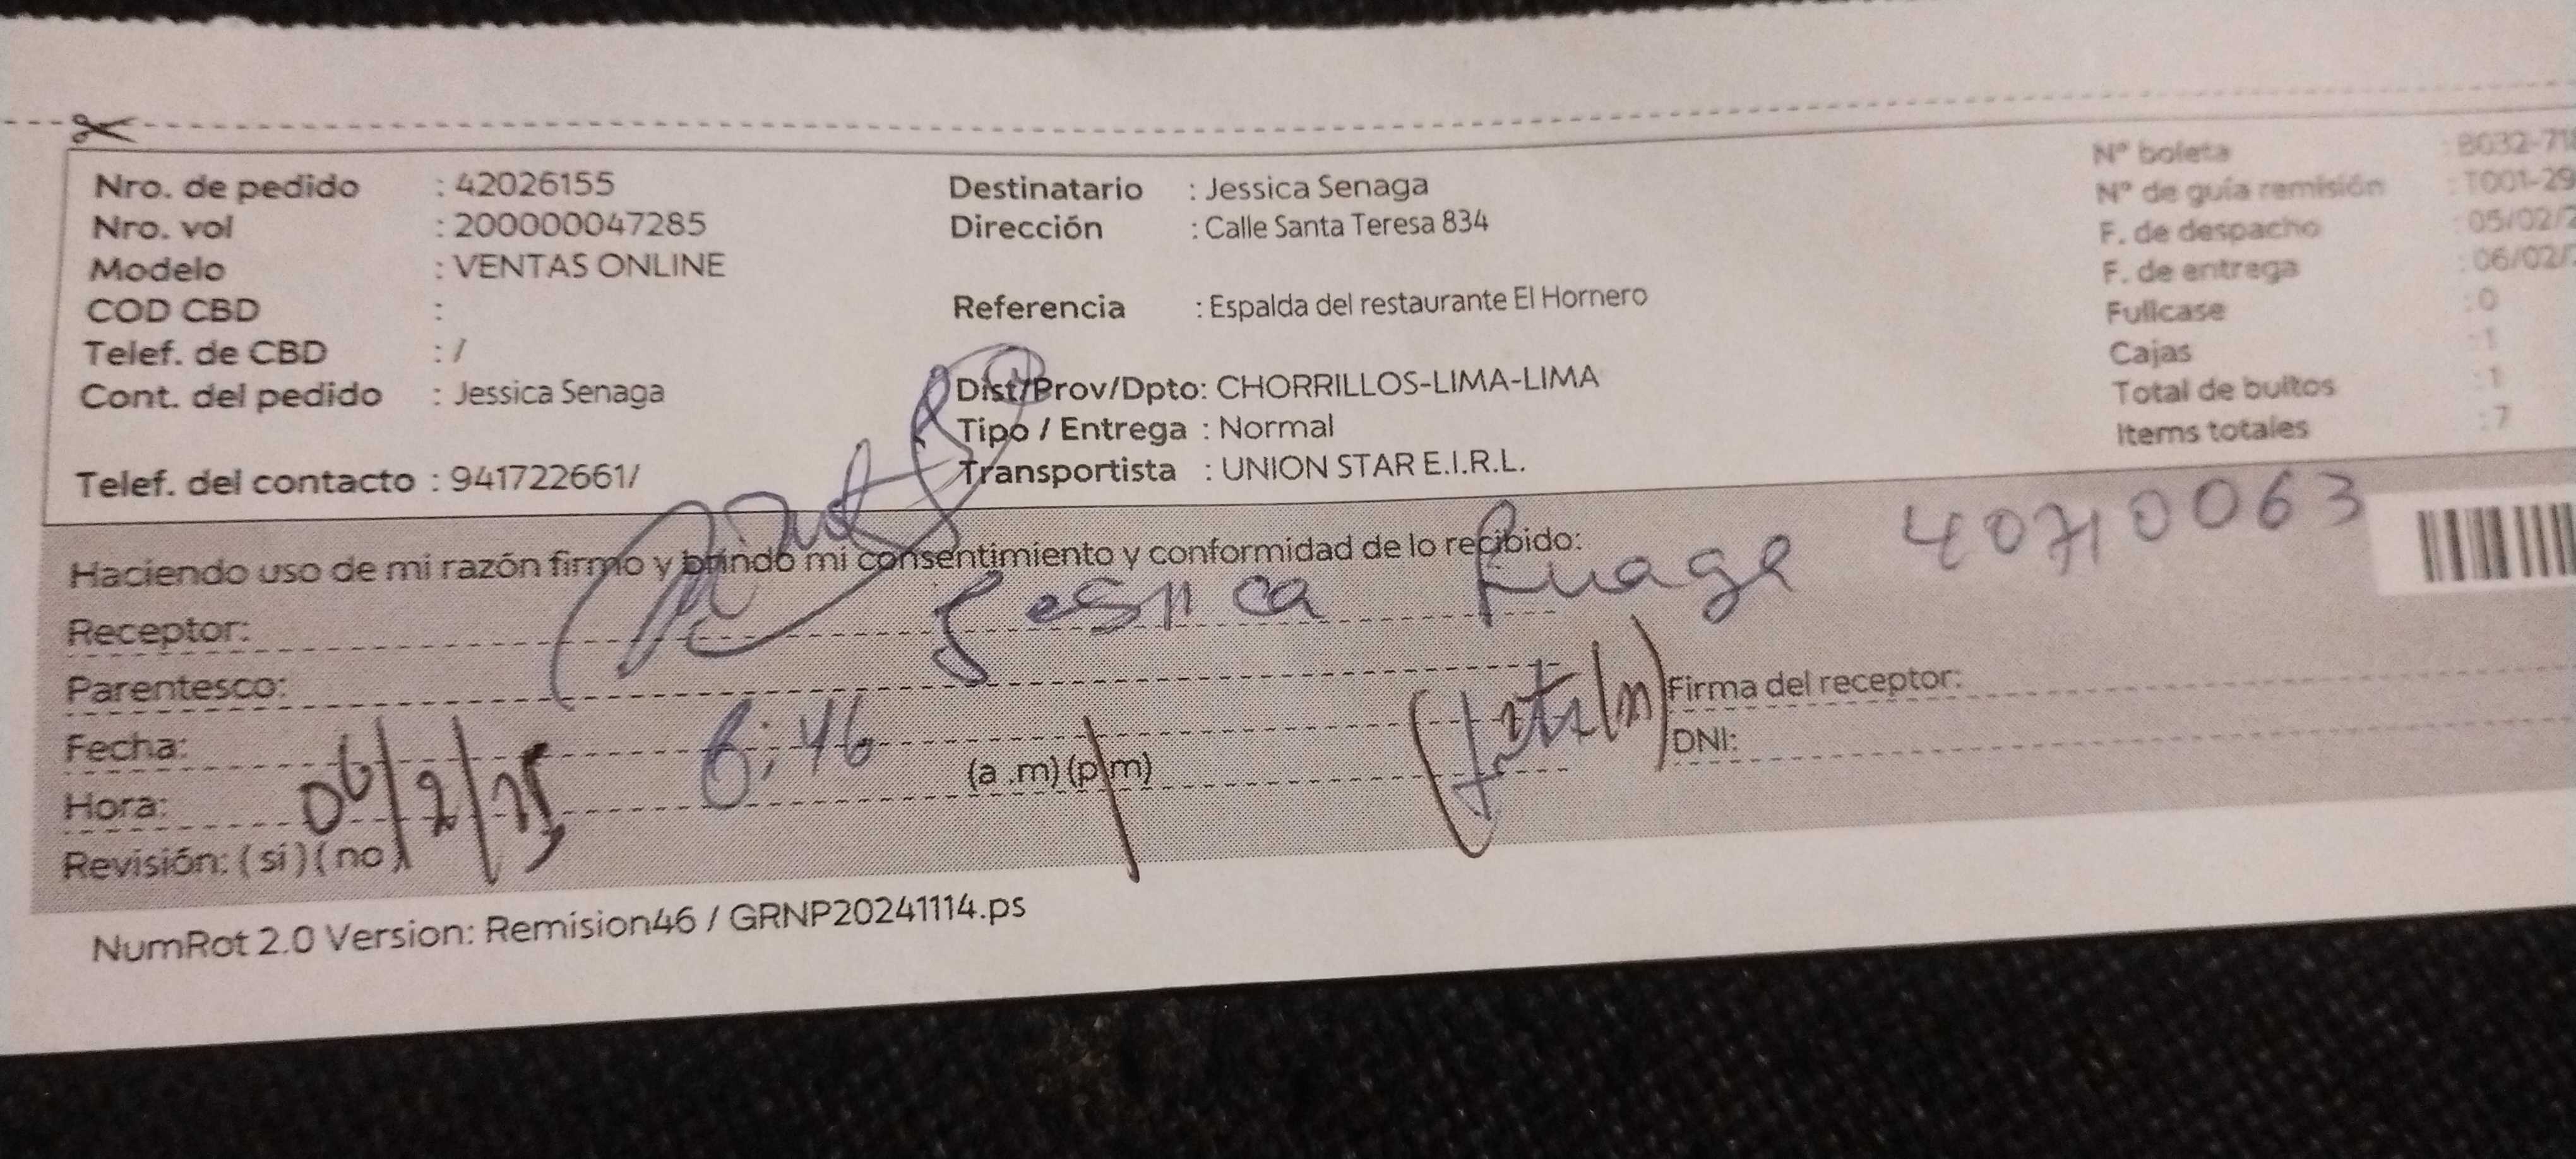 Nro. de pedido : 42026155
Nro. vol : 200000047285
Modelo : VENTAS ONLINE
COD CBD :
Telef. de CBD : /
Cont. del pedido : Jessica Senaga
Telef. del contacto : 941722661/
Destinatario : Jessica Senaga
Dirección : Calle Santa Teresa 834
Referencia : Espalda del restaurante El Hornero
Dist/Prov/Dpto: CHORRILLOS-LIMA-LIMA
Tipo / Entrega : Normal
Transportista : UNION STAR E.I.R.L.
Nº boleta : B032-71
Nº de guía remisión : T001-29
F. de despacho : 05/02/2
F. de entrega : 06/02/
Fullcase : 0
Cajas : 1
Total de bultos : 1
Items totales : 7
Haciendo uso de mi razón firmo y brindo mi consentimiento y conformidad de lo recibido:
40710063
Receptor: Jessica
Parentesco:
Firma del receptor:
Fecha: 06/2/25
DNI:
Hora: 6:46 (a .m) (p.m)
Revisión: ( si ) ( no )
NumRot 2.0 Version: Remision46 / GRNP20241114.ps